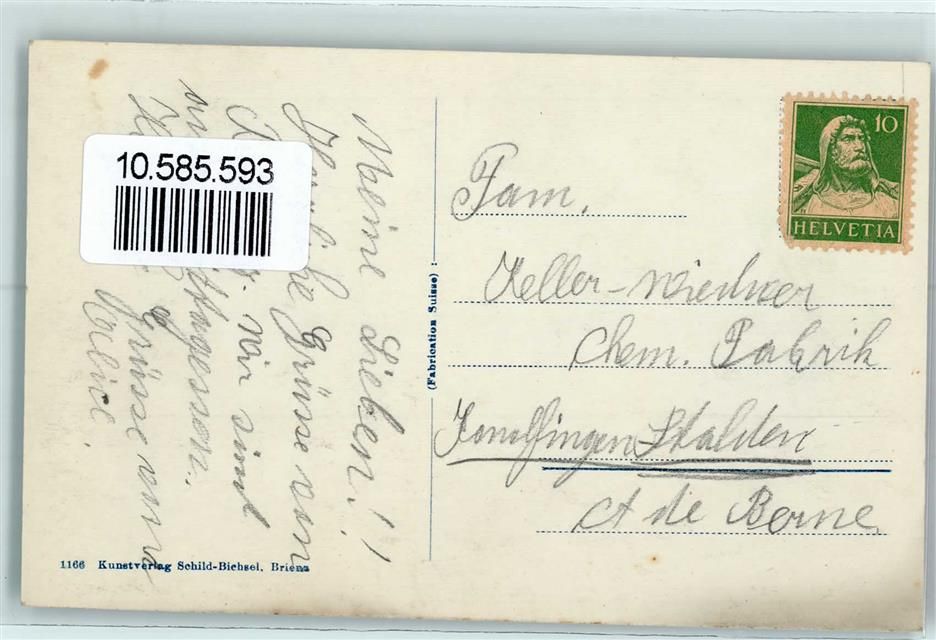 Meine Lieben!!
Herzliche Grüsse von
wir sind
Mittagessen.
Grüsse von
Alice.
10.585.593
(Fabrication Suisse) :
1166 Kunstverlag Schild-Bichsel, Brienz
10
HELVETIA
Fam.
Keller-Wiedmer
Chem. Fabrik
Konolfingen Stalden
Ct de Berne